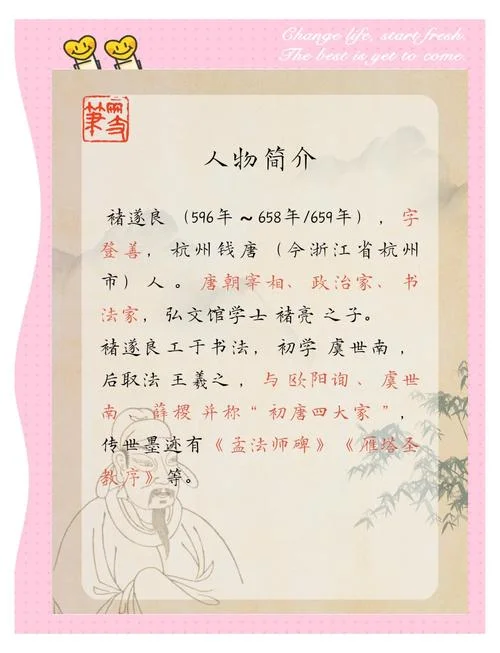 Change life, start fresh.
The best is yet to come.
人物简介
褚遂良（596年～658年/659年），字
登善，杭州钱唐（今浙江省杭州
市）人。唐朝宰相、政治家、书
法家，弘文馆学士 褚亮 之子。
褚遂良工于书法，初学 虞世南，
后取法 王羲之，与 欧阳询、虞世
南、薛稷 并称“初唐四大家”，
传世墨迹有《孟法师碑》《雁塔圣
教序》等。